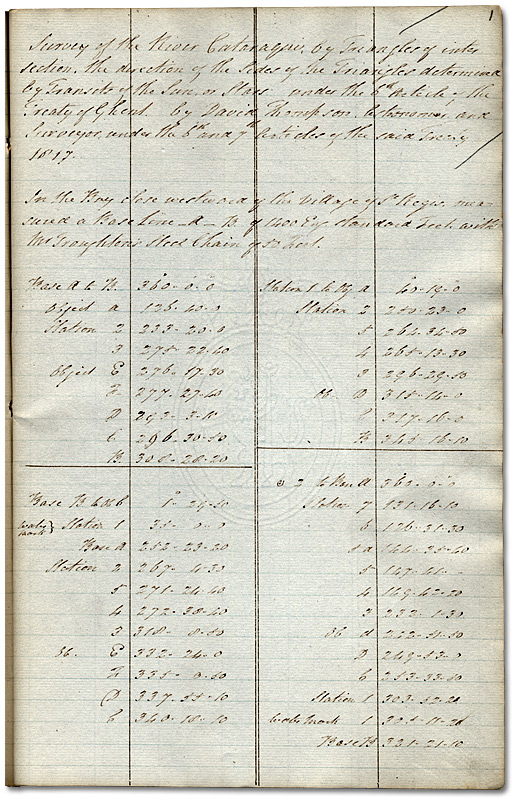 1
Survey of the River Cataraqui, by Triangles of inter
section, the direction of the Sides of the Triangles determined
by Transits of the Sun, or Stars under the 6th Article of the
Treaty of Ghent. by David Thompson, Astronomer and
Surveyor, under the 6th and 7th Articles of the said Treaty
1817.
In the Bay close westward of the Village of St Regis, mea-
sured a Base Line A - B of 1400 Eng. standard Feet with
Mr Troughton's Steel Chain of 50 feet.
Base A to B. 360-0-0
Object a 126-40-0
Station 2 233-20-0
3 275-22-40
Object E 276-17-30
F 277-27-40
D 292-3-10
C 296-30-50
B. 308-28-20
Base B. to Ob 6 1-29-50
Water mark } Station 1 35-0-0
Base A 252-23-20
Station 2 267-4-30
5 271-24-40
4 272-38-40
3 318-8-50
Ob. E 332-24-0
F 335-0-50
D 337-55-10
C 340-18-10
Station 1 to Ob a 60-19-0
Station 2 250-23-0
5 264-34-50
4 265-13-30
3 296-29-50
Ob. D 315-16-0
C 317-16-0
B 345-16-10
2 to Base A 360-0-0
Station 7 131-16-10
6 136-31-30
a 144-25-40
5 147-41-
4 149-42-20
3 232-1-30
Ob d 242-41-50
D 249-53-0
C 253-33-50
Station 1 303-52-20
Water mark 1 305-11-20
Base B 331-21-10